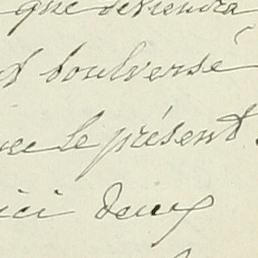 que deviendra
t boulversé
ec le présent.
ici deux